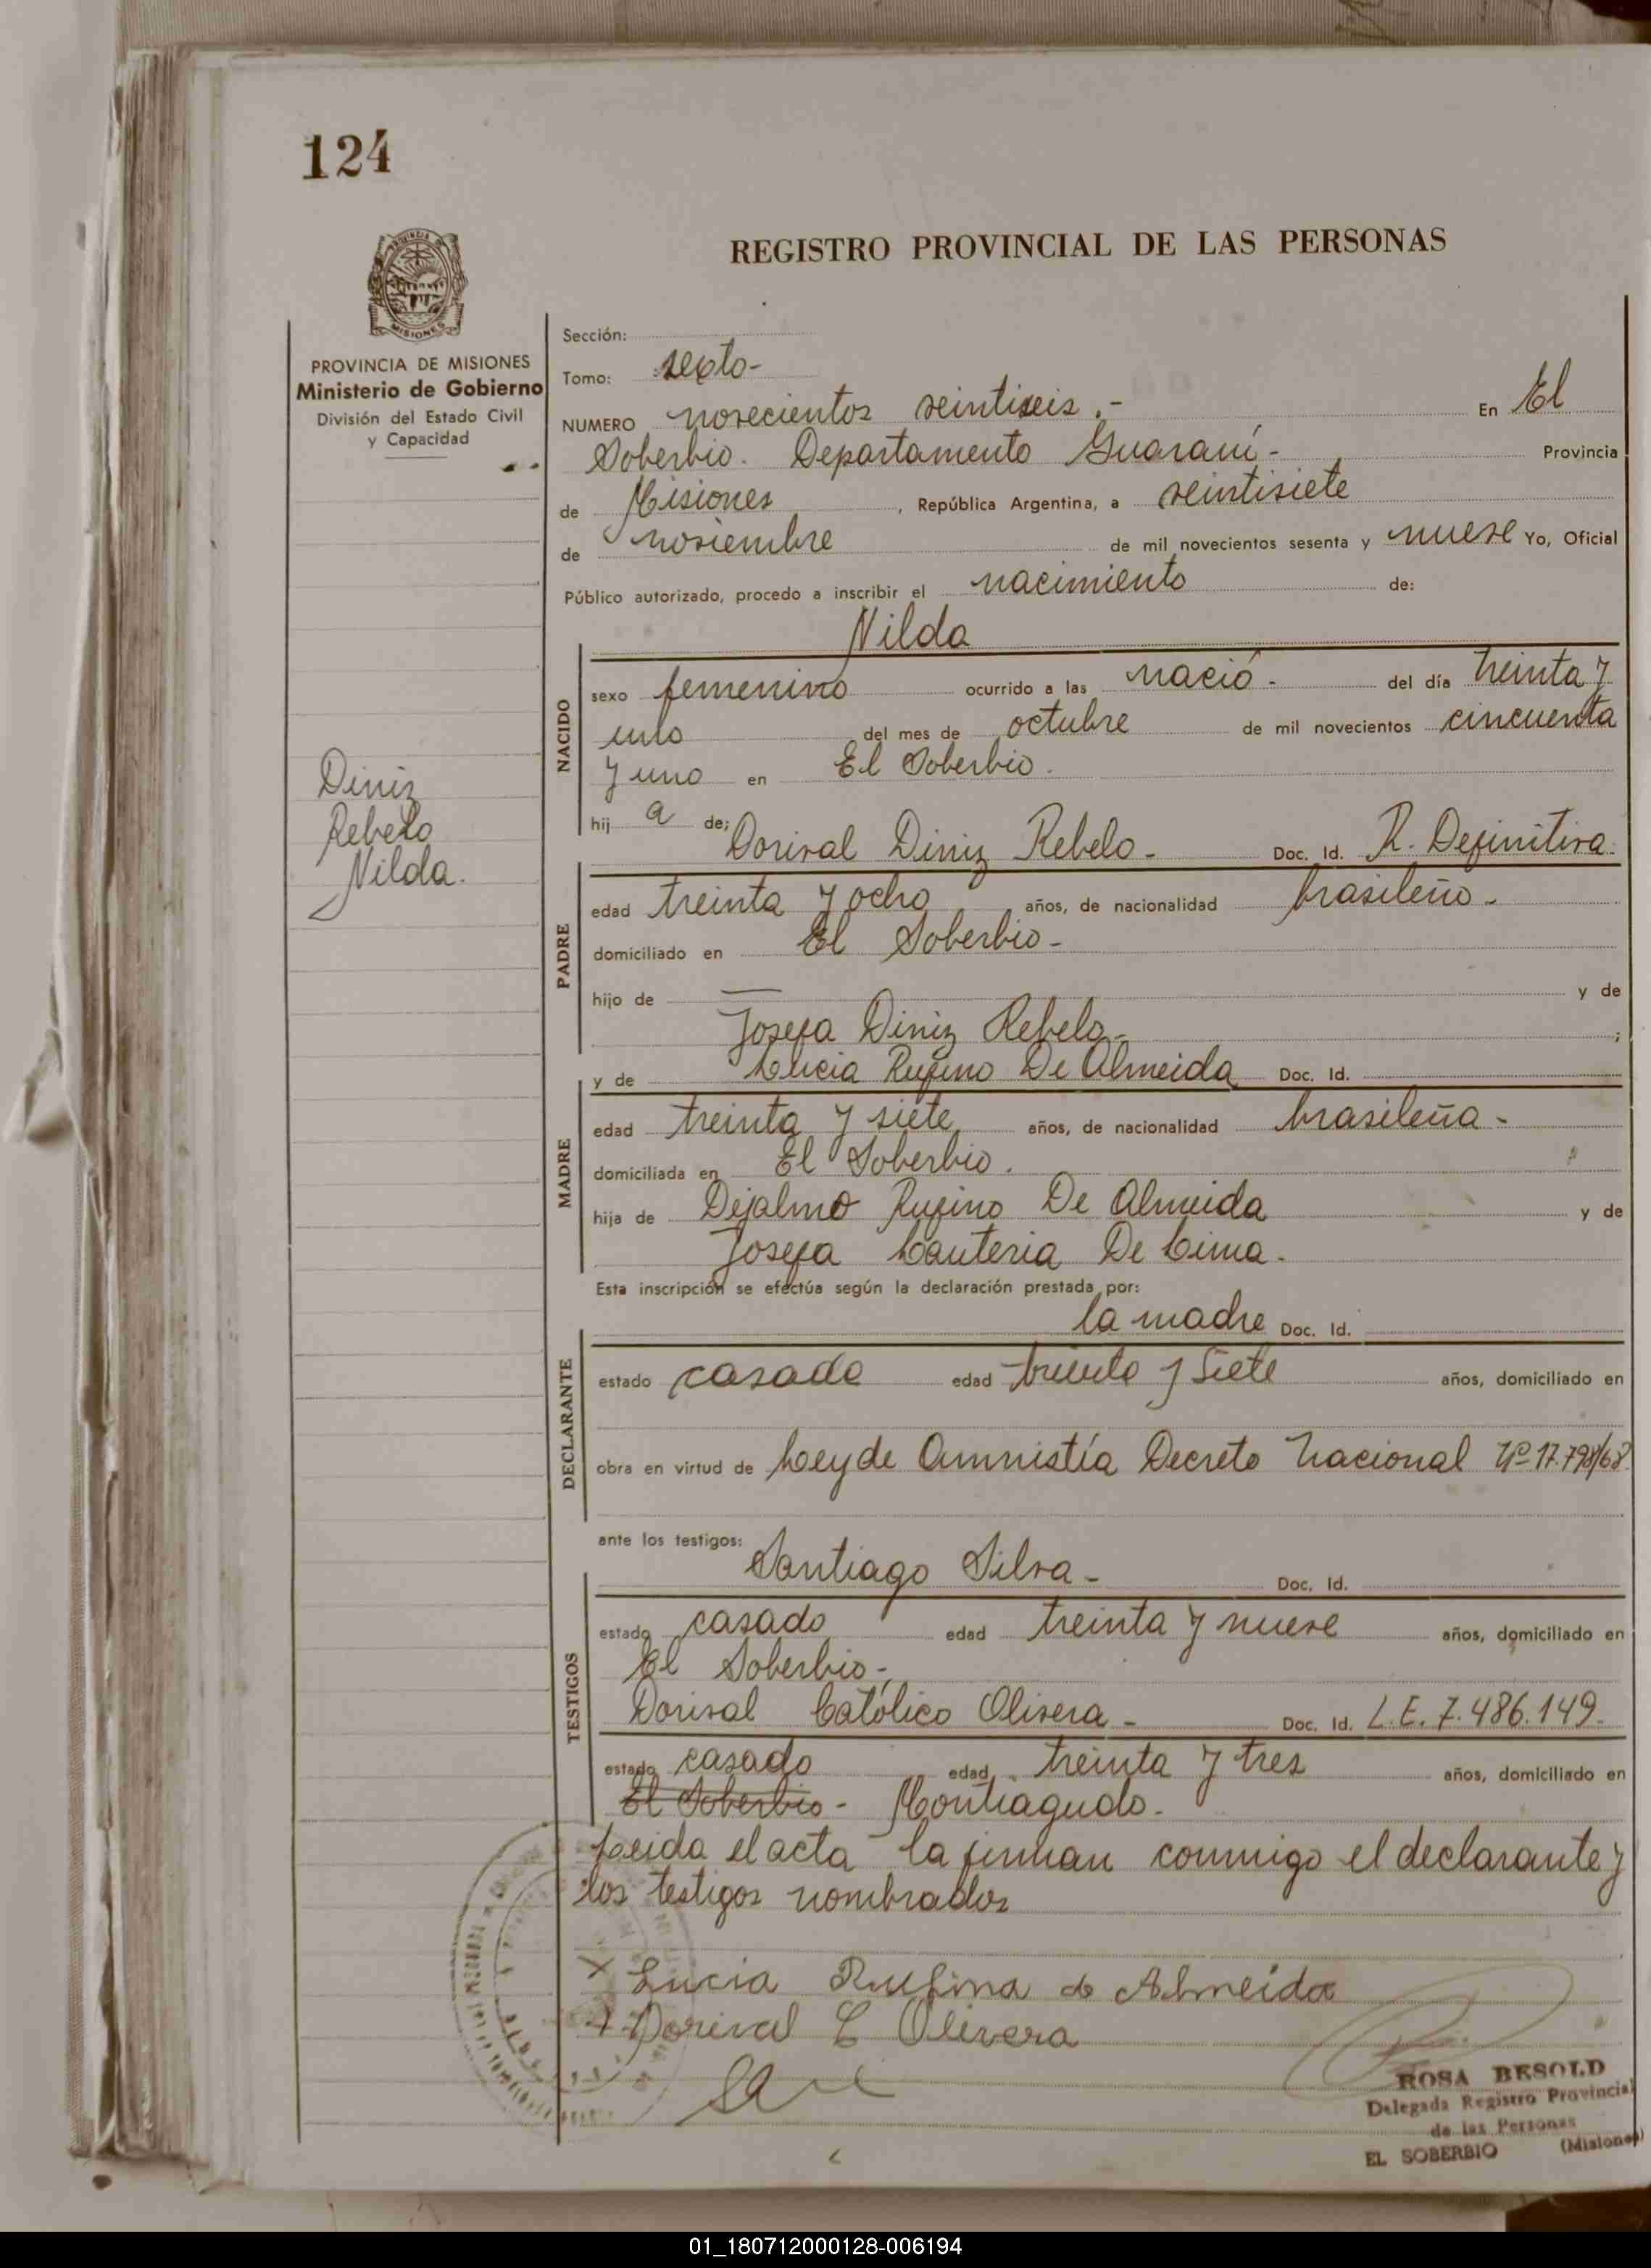 124
REGISTRO PROVINCIAL DE LAS PERSONAS
PROVINCIA DE MISIONES
Ministerio de Gobierno
División del Estado Civil
y Capacidad
Sección:
Tomo: sexto-
NUMERO novecientos veintiseis.- En El
Soberbio. Departamento Guaraní- Provincia
de Misiones, República Argentina, a veintisiete
de noviembre de mil novecientos sesenta y nueve Yo, Oficial
Público autorizado, procedo a inscribir el nacimiento de:
Nilda
NACIDO
sexo femenino ocurrido a las nació- del día treinta y
uno del mes de octubre de mil novecientos cincuenta
y uno en El Soberbio.
hij a de;
Diniz
Rebelo
Nilda.
Dorival Diniz Rebelo- Doc. Id. R. Definitiva.
PADRE
edad treinta y ocho años, de nacionalidad brasileño-
domiciliado en El Soberbio-
hijo de — y de
Josefa Diniz Rebelo- ;
y de Lucia Rufino De Almeida Doc. Id.
MADRE
edad treinta y siete años, de nacionalidad brasileña-
domiciliada en El Soberbio.
hija de Dejalmo Rufino De Almeida y de
Josefa De Lima.
Esta inscripción se efectúa según la declaración prestada por:
la madre Doc. Id.
DECLARANTE
estado casada edad treinta y siete años, domiciliado en
obra en virtud de Ley de Amnistía Decreto Nacional Nº 17.798/68
ante los testigos:
Santiago Silva- Doc. Id.
TESTIGOS
estado casado edad treinta y nueve años, domiciliado en
El Soberbio-
Dorival Católico Olivera- Doc. Id. L.E. 7.486.149.
estado casado edad treinta y tres años, domiciliado en
El Soberbio- Monteagudo.
Leida el acta la firman conmigo el declarante y
los testigos nombrados
x Lucia Rufina de Almeida
+ Dorival C Olivera
ROSA BESOLD
Delegada Registro Provincial
de las Personas
EL SOBERBIO (Misiones)
01_180712000128-006194